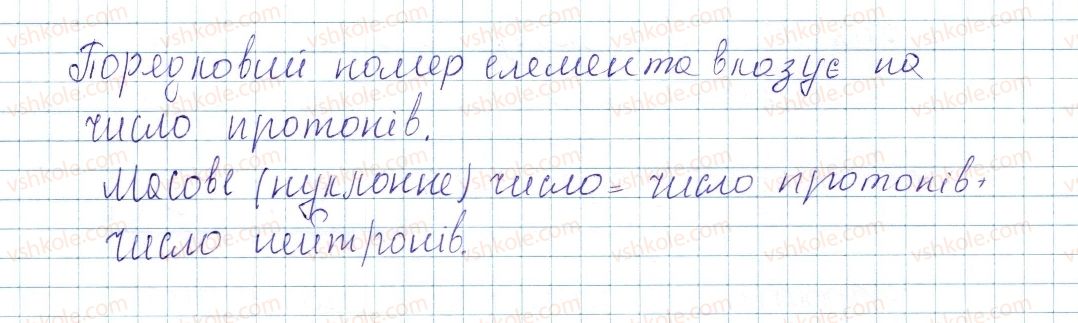 Порядковий номер елемента вказує на
число протонів.
Масове (нуклонне) число = число протонів +
число нейтронів.